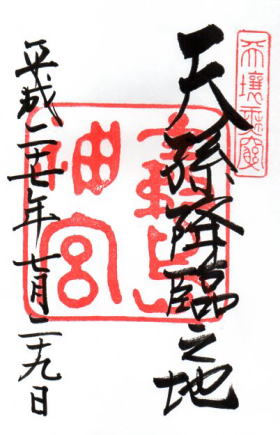 天壤無窮
天孫降臨之地
霧島
神宮
平成二十七年七月二十九日